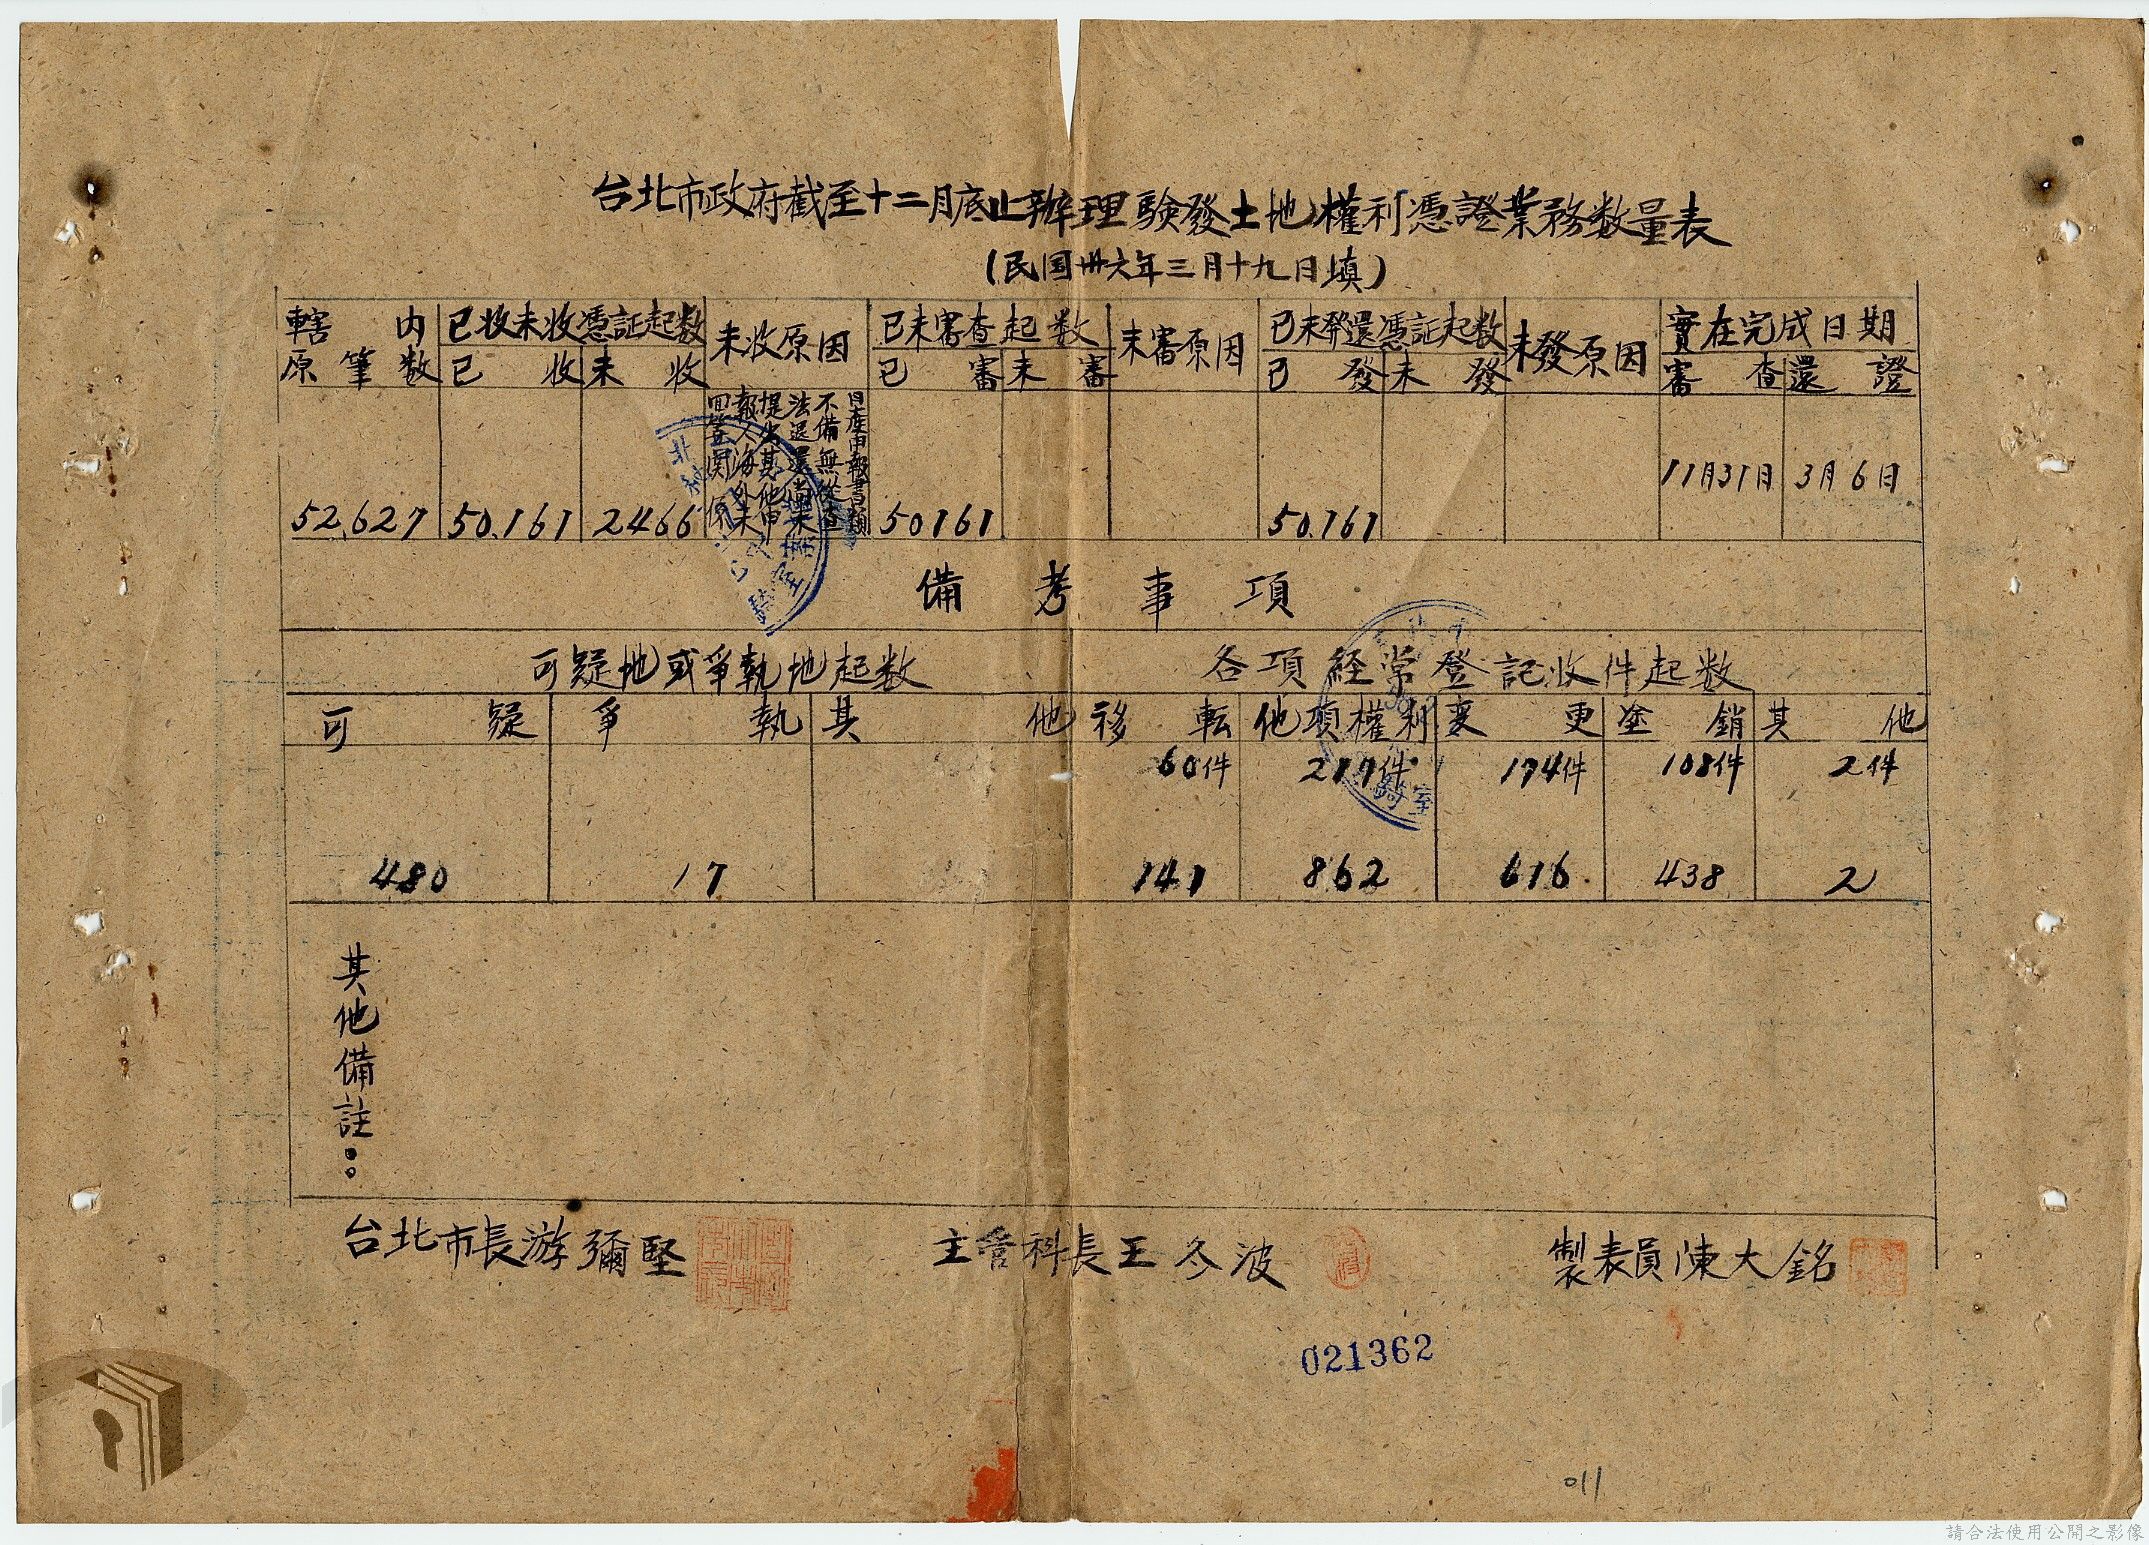 台北市政府截至十二月底止辦理驗發土地權利憑證業務数量表
(民国卅六年三月十九日填)
轄内原筆数 已收未收憑証起数 未收原因 已未審查起数 未審原因 已未發還憑証起数 未發原因 實在完成日期
已收 未收 已審 未審 已發 未發 審查 還證
日產申報書類
不備無從查
法退還尚未
提出其他申
報人海外未
回等関係
11月31日 3月6日
52,627 50.161 2466 50161 50.161
備考事項
可疑地或爭執地起数 各項経常登記收件起数
可疑 爭執 其他 移転 他項權利 変更 塗銷 其他
60件 277件 174件 108件 2件
480 17 141 862 616 438 2
其他備註：
台北市長游彌堅 主管科長王冬波 製表員陳大銘
021362
011
請合法使用公開之影像